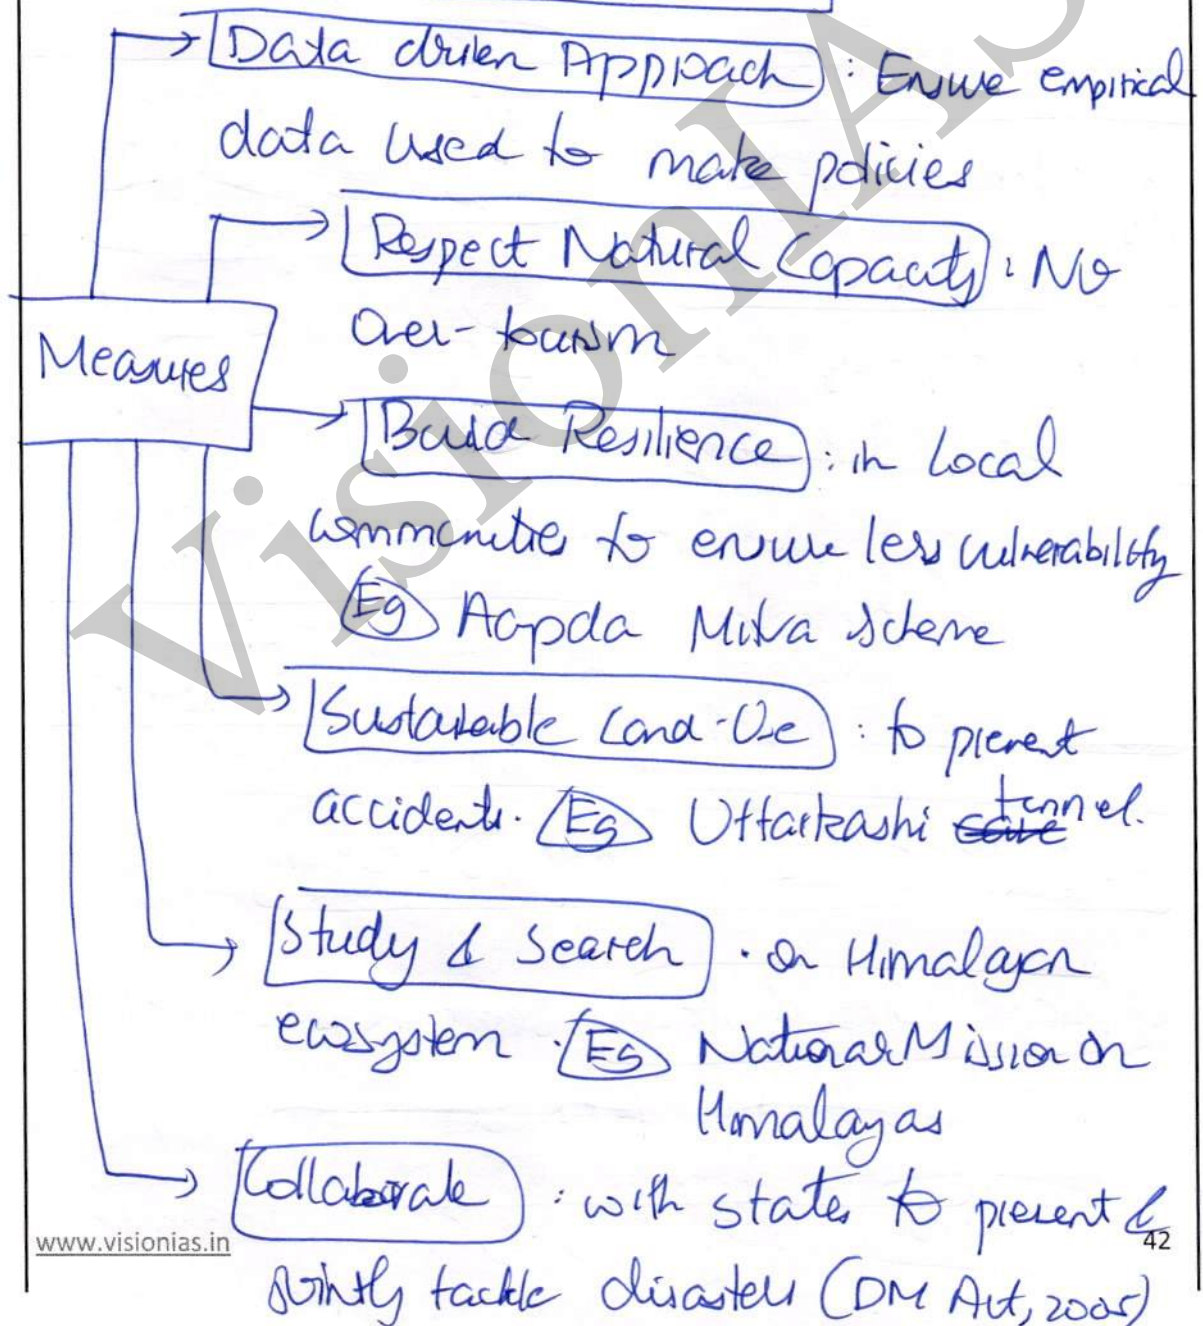 Data driven Approach : Ensure empirical
data used to make policies
Respect Natural Capacity : No
Over-tourism
Measures
Build Resilience : in local
communities to ensure less vulnerability
Eg Aapda Mitra scheme
Sustainable Land-Use : to prevent
accidents. Eg Uttarkashi tunnel.
Study & Search : on Himalayan
ecosystem. Eg National Mission on
Himalayas
Collaborate : with states to prevent &
www.visionias.in
42
jointly tackle disasters (DM Act, 2005)
VisionIAS